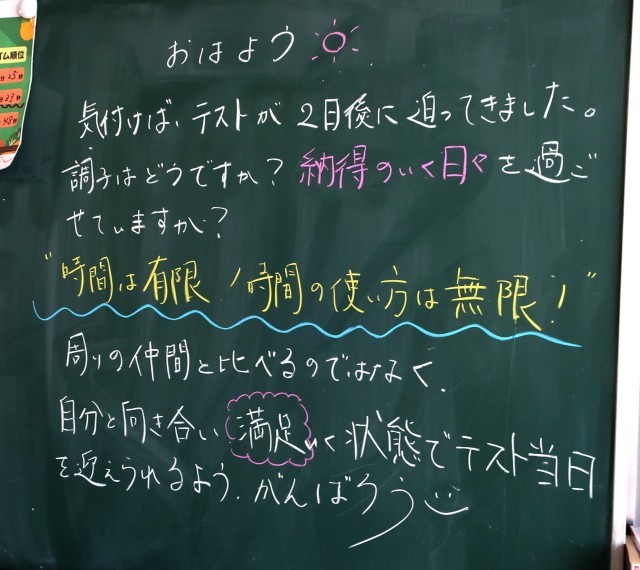 おはよう
気付けば、テストが2日後に迫ってきました。
調子はどうですか？納得のいく日々を過ご
せていますか？
"時間は有限！時間の使い方は無限！"
周りの仲間と比べるのではなく、
自分と向き合い満足いく状態でテスト当日
を迎えられるよう、がんばろう
ム順位